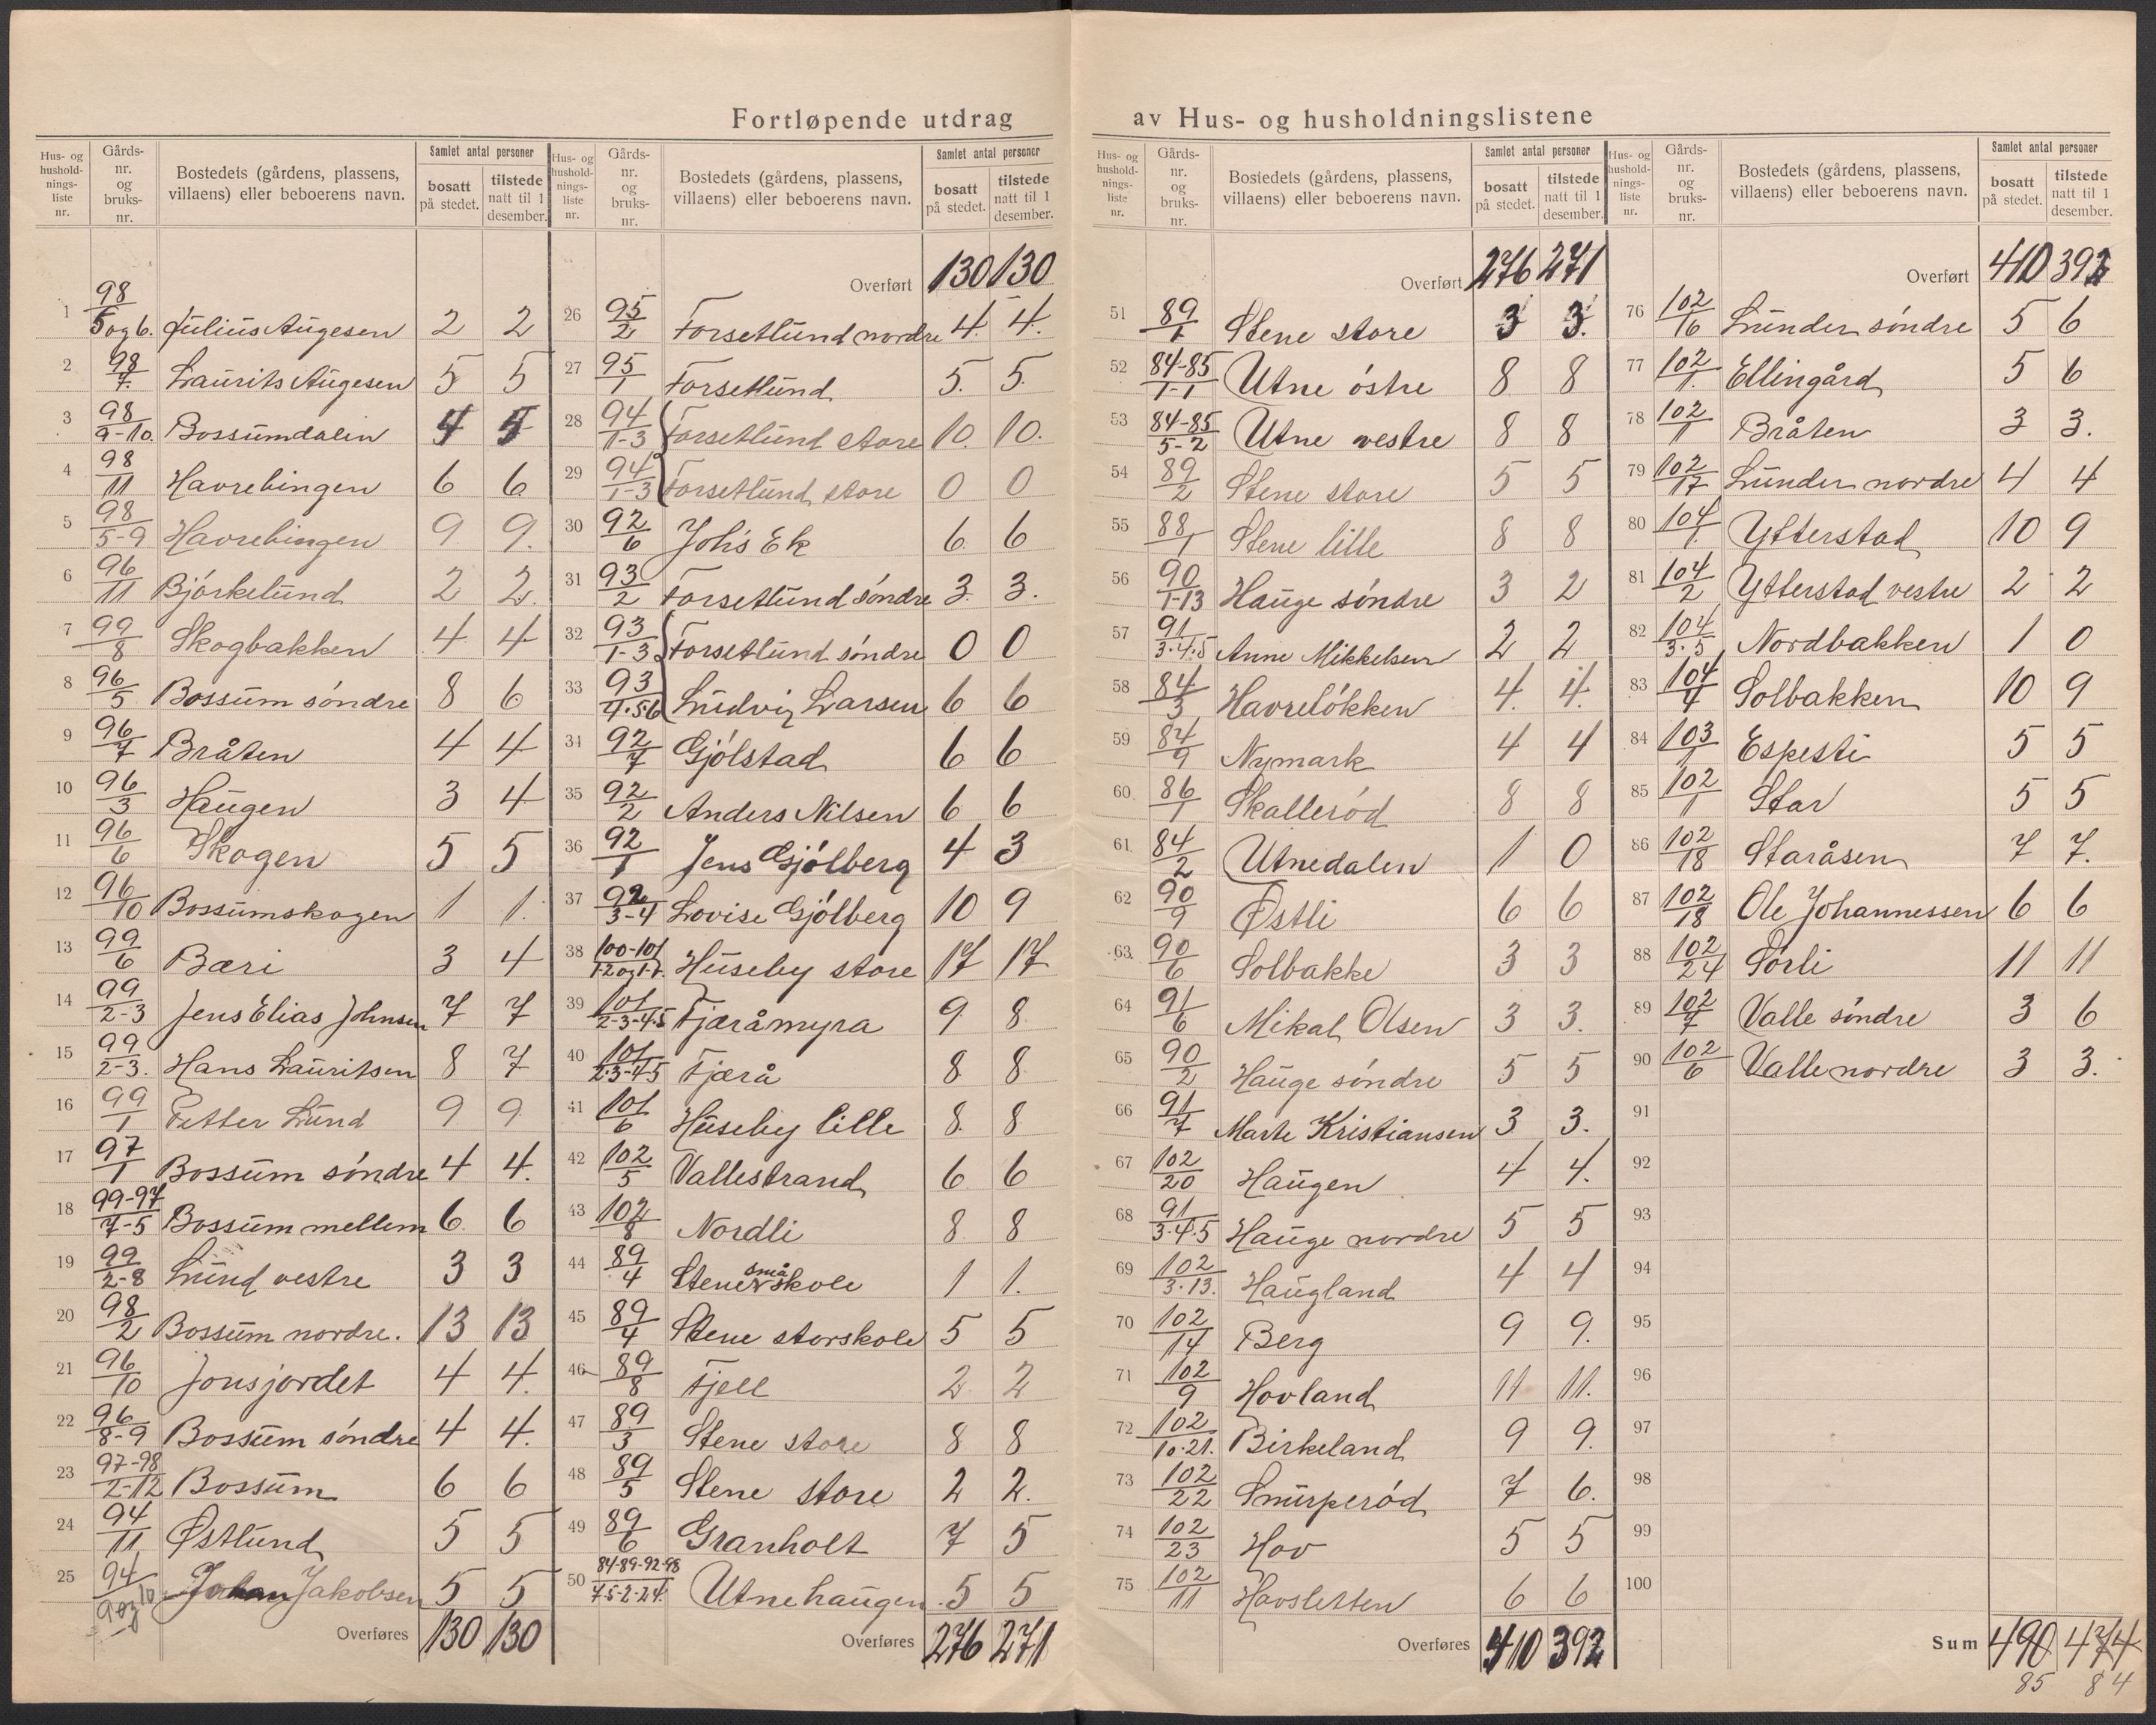 Fortløpende utdrag av Hus- og husholdningslistene
Hus- og husholdningsliste nr. | Gårds-nr. og bruks-nr. | Bostedets (gårdens, plassens, villaens) eller beboerens navn. | Samlet antal personer bosatt på stedet. | tilstede natt til 1 desember.
1 98/5og6. Julius Augesen 2 2
2 98/7. Laurits Augesen 5 5
3 98/9-10. Bossumdalen
4 98/11 Havrebingen 6 6
5 98/5-9 Havrebingen 9 9.
6 96/11 Bjørkelund 2 2.
7 99/8 Skogbakken 4 4
8 96/5 Bossum søndre 8 6
9 96/7 Bråten 4 4
10 96/3 Haugen 3 4
11 96/6 Skogen 5 5
12 96/10 Bossumskogen 1 1.
13 99/6 Bæri 3 4
14 99/2-3 Jens Elias Johnsen 7 7
15 99/2-3. Hans Lauritsen 8 7
16 99/1 Petter Lund 9 9
17 97/1 Bossum søndre 4 4.
18 99-97/7-5 Bossum mellem 6 6
19 99/2-8 Lund vestre 3 3
20 98/2 Bossum nordre. 13 13
21 96/10 Jonsjordet 4 4.
22 96/8-9 Bossum søndre 4 4.
23 97-98/2-12 Bossum 6 6
24 94/11 Østlund 5 5
25 94/9og10 Johan Jakobsen 5 5
Overføres 130 130
Hus- og husholdningsliste nr. | Gårds-nr. og bruks-nr. | Bostedets (gårdens, plassens, villaens) eller beboerens navn. | Samlet antal personer bosatt på stedet. | tilstede natt til 1 desember.
Overført 130 130
26 95/2 Forsetlund nordre 4 4.
27 95/1 Forsetlund 5. 5.
28 94/1-3 Forsetlund store 10. 10.
29 94/1-3 Forsetlund store 0 0
30 92/6 Johs Ek 6. 6
31 93/2 Forsetlund søndre 3. 3.
32 93/1-3 Forsetlund søndre 0 0
33 93/4.5.6 Ludvig Larsen 6 6
34 92/7 Gjølstad 6 6
35 92/2 Anders Nilsen 6 6
36 92/1 Jens Gjølberg 4 3
37 92/3-4 Lovise Gjølberg 10 9
38 100-101/1-2og1-7. Huseby store 17 17
39 101/2-3-4.5 Fjæråmyra 9 8
40 101/2-3-4-5 Fjærå 8 8
41 101/6 Huseby lille 8. 8
42 102/5 Vallestrand 6 6
43 102/8 Nordli 8 8
44 89/4 Stene småskole 1 1.
45 89/4 Stene storskole 5 5
46 89/8 Fjell 2 2
47 89/3 Stene store 8 8
48 89/5 Stene store 2 2.
49 89/6 Granholt 7 5
50 84-89-92-98/7-5-2-24. Utnehaugen 5 5
Overføres 276 271
Hus- og husholdningsliste nr. | Gårds-nr. og bruks-nr. | Bostedets (gårdens, plassens, villaens) eller beboerens navn. | Samlet antal personer bosatt på stedet. | tilstede natt til 1 desember.
Overført 276 271
51 89/1 Stene store 3 3.
52 84-85/1-1 Utne østre 8 8
53 84-85/5-2 Utne vestre 8 8
54 89/2 Stene store 5 5
55 88/1 Stene lille 8 8
56 90/1-13 Hauge søndre 3 2
57 91/3.4.5 Anne Mikkelsen 2 2
58 84/3 Havreløkken 4. 4.
59 84/9 Nymark 4 4
60. 86/1 Skallerød 8 8
61. 84/2 Utnedalen 1 0
62 90/9 Østli 6 6
63. 90/6 Solbakke 3 3
64 91/6 Mikal Olsen 3 3.
65 90/2 Hauge søndre 5 5
66 91/7 Marte Kristiansen 3 3.
67 102/20 Haugen 4 4.
68 91/3.4.5 Hauge nordre 5 5
69 102/3.13. Haugland 4 4
70 102/14 Berg 9 9.
71 102/9 Hovland 11 11.
72 102/10.21. Birkeland 9 9.
73 102/22 Snurperød 7 6.
74 102/23 Hov 5 5
75 102/11 Havsletten 6 6
Overføres 410 392
Hus- og husholdningsliste nr. | Gårds-nr. og bruks-nr. | Bostedets (gårdens, plassens, villaens) eller beboerens navn. | Samlet antal personer bosatt på stedet. | tilstede natt til 1 desember.
Overført 410 392
76 102/16 Lunder søndre 5 6
77 102/1. Ellingård 5 6
78 102/1 Bråten 3 3.
79 102/17 Lunder nordre 4 4
80 104/1. Ytterstad 10 9
81 104/2 Ytterstad vestre 2 2
82 104/3.5 Nordbakken 1 0
83 104/4 Solbakken 10 9
84 103/1 Espesti 5 5
85 102/1 Star 5 5
86 102/18 Staråsen 7 7.
87 102/18 Ole Johannessen 6 6
88 102/24 Sørli 11 11
89 102/7 Valle søndre 3 6
90 102/6 Valle nordre 3 3.
91
92
93
94
95
96
97
98
99
100
Sum 490 474
85 84